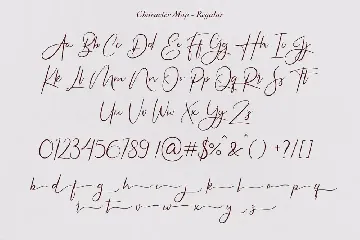 Character Map - Regular
Aa Bb Cc Dd Ee Ff Gg Hh Ii Jj
Kk Ll Mm Nn Oo Pp Qq Rr Ss Tt
Uu Vv Ww Xx Yy Zz
0123456789 !@#$%^&*() +?/[]
b d f g h i j k l o p q
r t v w x y s